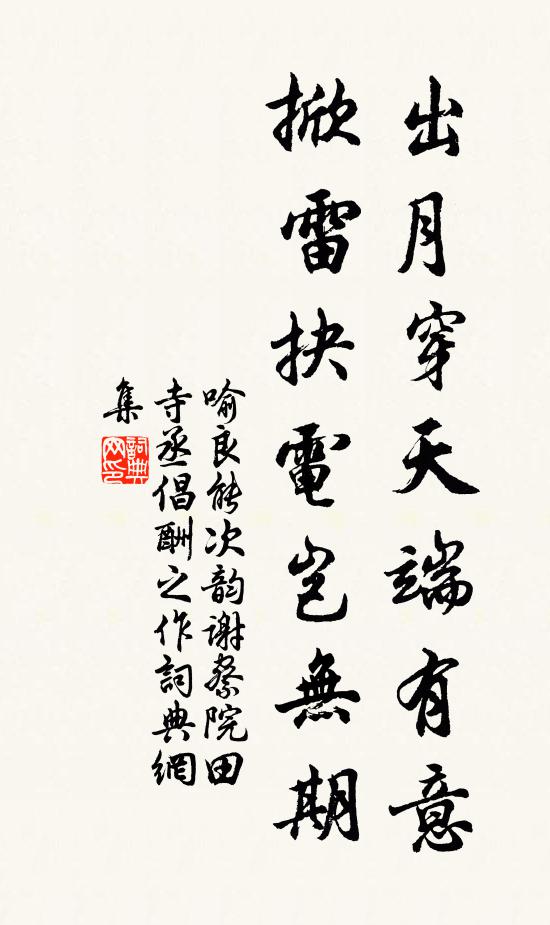 出月穿天端有意
掀雷抉電岂無期
喻良能次韵谢察院田
寺丞倡酬之作詞典網
集
詞典
网印